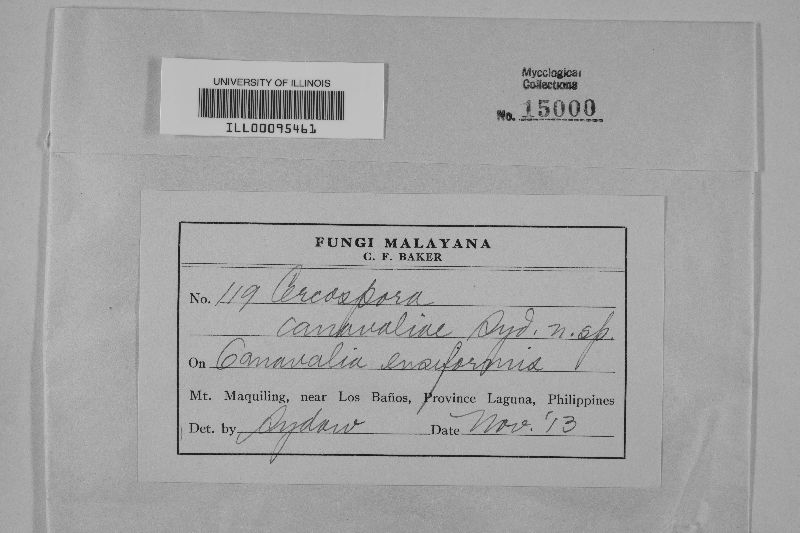 UNIVERSITY OF ILLINOIS
ILL00095461
Mycological
Collections
No. 15000
FUNGI MALAYANA
C. F. BAKER
No. 119 Cercospora
canavaliae Syd. n. sp.
On Canavalia ensiformis
Mt. Maquiling, near Los Baños, Province Laguna, Philippines
Det. by Sydow Date Nov. '13